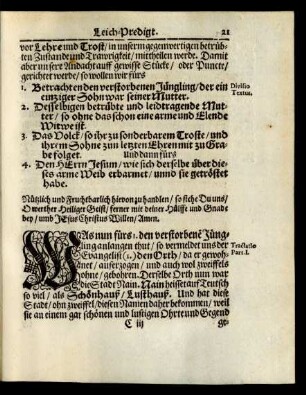 Leich-Predigt. 21
vor Lehre und Trost / in unserm gegenwertigen betrüb-
ten Zustande und Trawrigkeit / mittheilen werde. Damit
aber unsere Andacht auff gewisse Stücke / oder Puncte,
gerichtet werde / so wollen wir fürs
1. Betrachten den verstorbenen Jüngling / der ein
einziger Sohn war seiner Mutter.
Divisio
Textus.
2. Desselbigen betrübte und leidtragende Mut-
ter / so ohne das schon eine arme und Elende
Witwe ist.
3. Das Volck / so ihr zu sonderbarem Troste / und
ihrem Sohne zum letzten Ehren mit zu Gra-
be folget. und dann fürs
4. Den HErrn Jesum / wie sich derselbe über die-
ses arme Weib erbarmet / unnd sie getröstet
habe.
Nützlich und Fruchtbarlich hiervon zu handlen / so stehe Du uns /
O werther Heiliger Geist / ferner mit deiner Hülffe und Gnade
bey / umb JEsus Christus Willen / Amen.
WAs nun fürs 1. den verstorbenē Jüng-
ling anlangen thut / so vermeldet uns der
Evangelist (1.) den Orth / da er gewoh-
Tractatio
Part. I.
net / aufferzogen / und auch wol zweiffels
ohne / gebohren. Derselbe Orth nun war
die Stadt Nain. Nain heisset auff Teutsch
so viel / als Schönhauß / Lusthauß. Und hat diese
Stadt / ohn zweiffel / diesen Namen daher bekommen / weil
sie an einem gar schönen und lustigen Ohrte und Gegend
C iij ge-